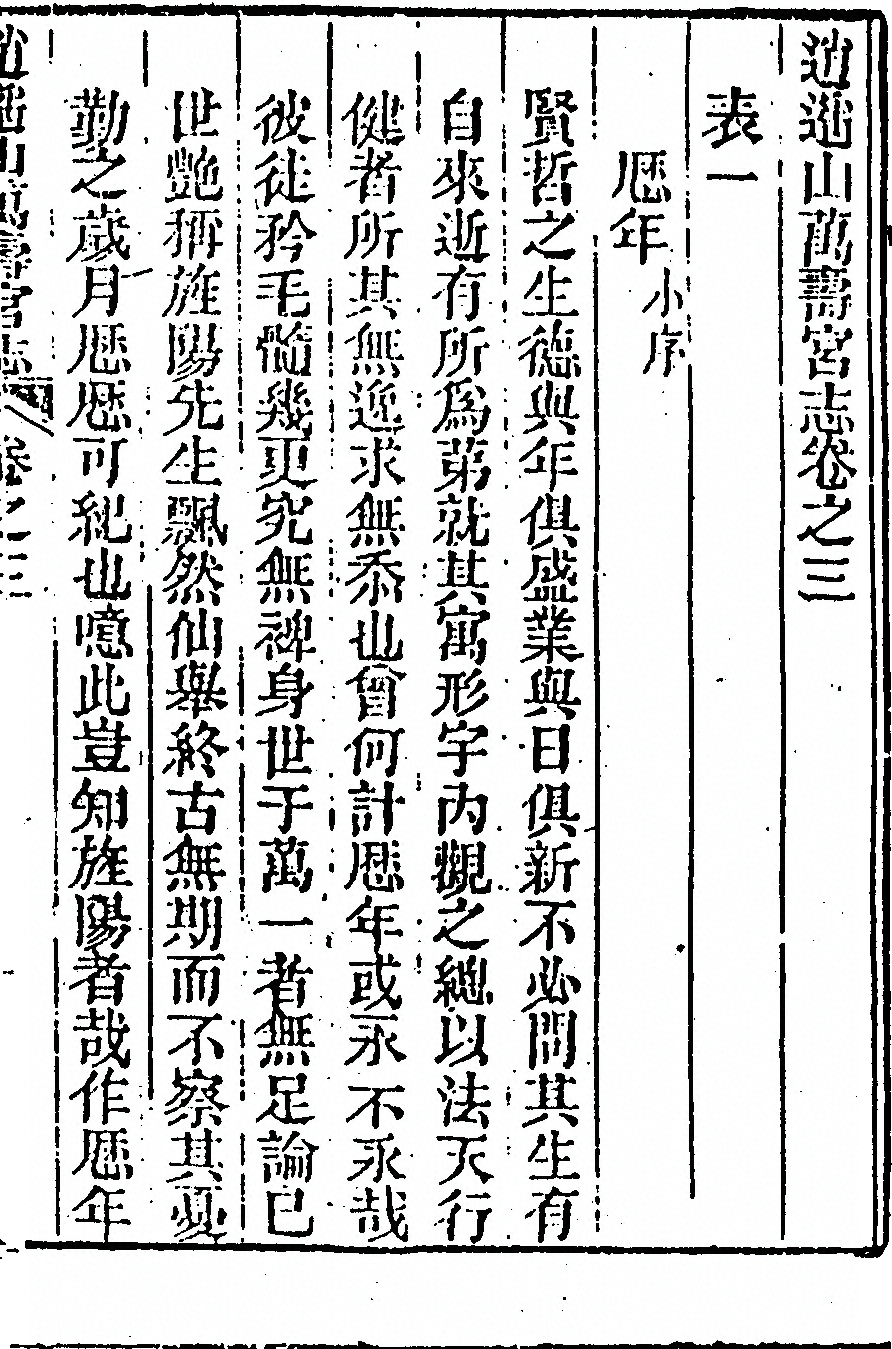 逍遙山萬壽宮志卷之三
表一
歷年小序
賢哲之生德與年俱盛業與日俱新不必問其生有
自來逝有所爲第就其寓形宇內觀之總以法天行
健者所其無逸求無忝也曾何計歷年或永不永哉
彼徒矜毛髓幾更究無裨身世于萬一者無足論已
世艷稱旌陽先生飄然仙舉終古無期而不察其憂
勤之歲月歷歷可紀也噫此豈知旌陽者哉作歷年
逍遙山萬壽宮志 卷之三